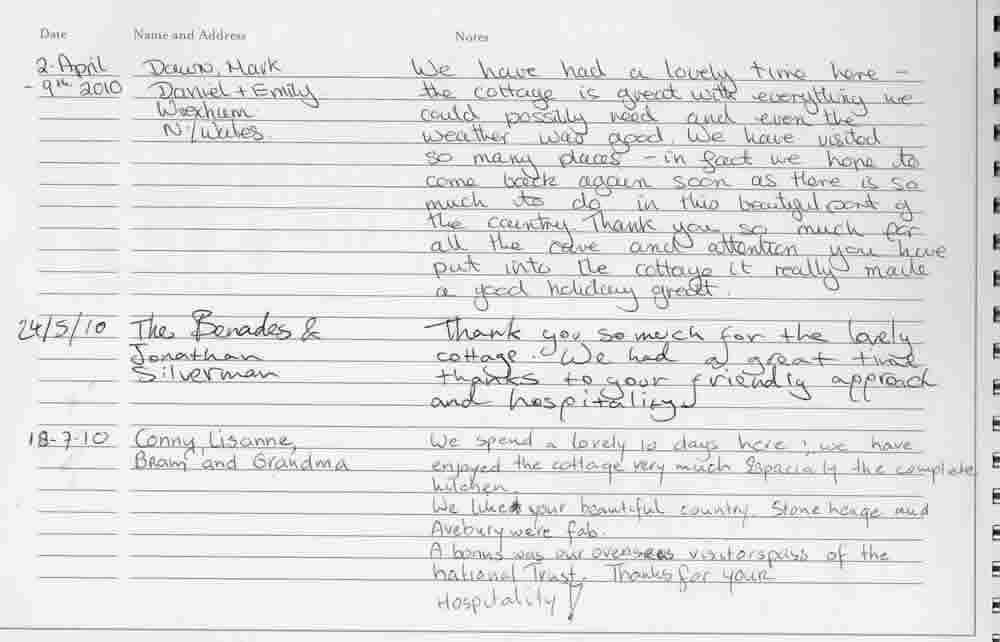 Date Name and Address Notes
2 April Dawn, Mark We have had a lovely time here -
- 9th 2010 Daniel + Emily the cottage is great with everything we
Wrexham could possibly need and even the
N. Wales. weather was good. We have visited
so many places - in fact we hope to
come back again soon as there is so
much to do in this beautiful part of
the country. Thank you so much for
all the care and attention you have
put into the cottage it really made
a good holiday great.
24/5/10 The Benades & Thank you so much for the lovely
Jonathan cottage. We had a great time
Silverman thanks to your friendly approach
and hospitality.
18-7-10 Conny, Lisanne, We spend a lovely 10 days here ; we have
Bram, and Grandma enjoyed the cottage very much Espacialy the complete
kitchen.
We like your beautiful country. Stonehenge and
Avebury were fab.
A bonus was our overseas visitorspass of the
National Trust. Thanks for your
Hospitality!